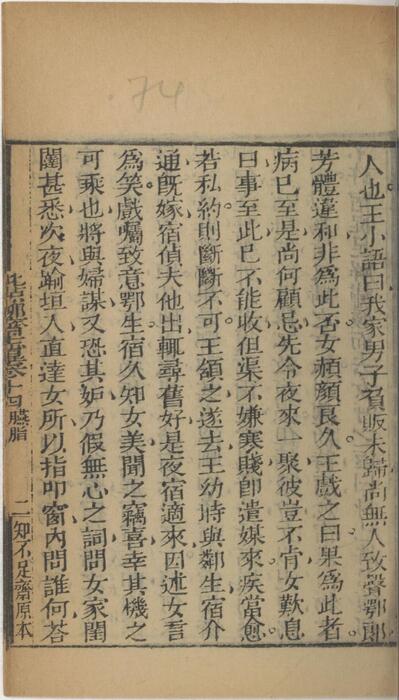 74
人也王小語曰我家男子負販未歸尚無人致聲鄂郎
芳體違和非爲此否女頳顏良久王戲之曰果爲此者
病已至是尚何顧忌先令夜來一聚彼豈不肯女歎息
曰事至此已不能收但渠不嫌寒賤卽遣媒來疾當愈
若私約則斷斷不可王頷之遂去王幼時與鄰生宿介
通旣嫁宿偵夫他出輒尋舊好是夜宿適來因述女言
爲笑戲囑致意鄂生宿久知女美聞之竊喜幸其機之
可乘也將與婦謀又恐其妒乃假無心之詞問女家閨
闥甚悉次夜踰垣入直達女所以指叩窗內問誰何荅
卷十四 臙脂
二 知不足齋原本